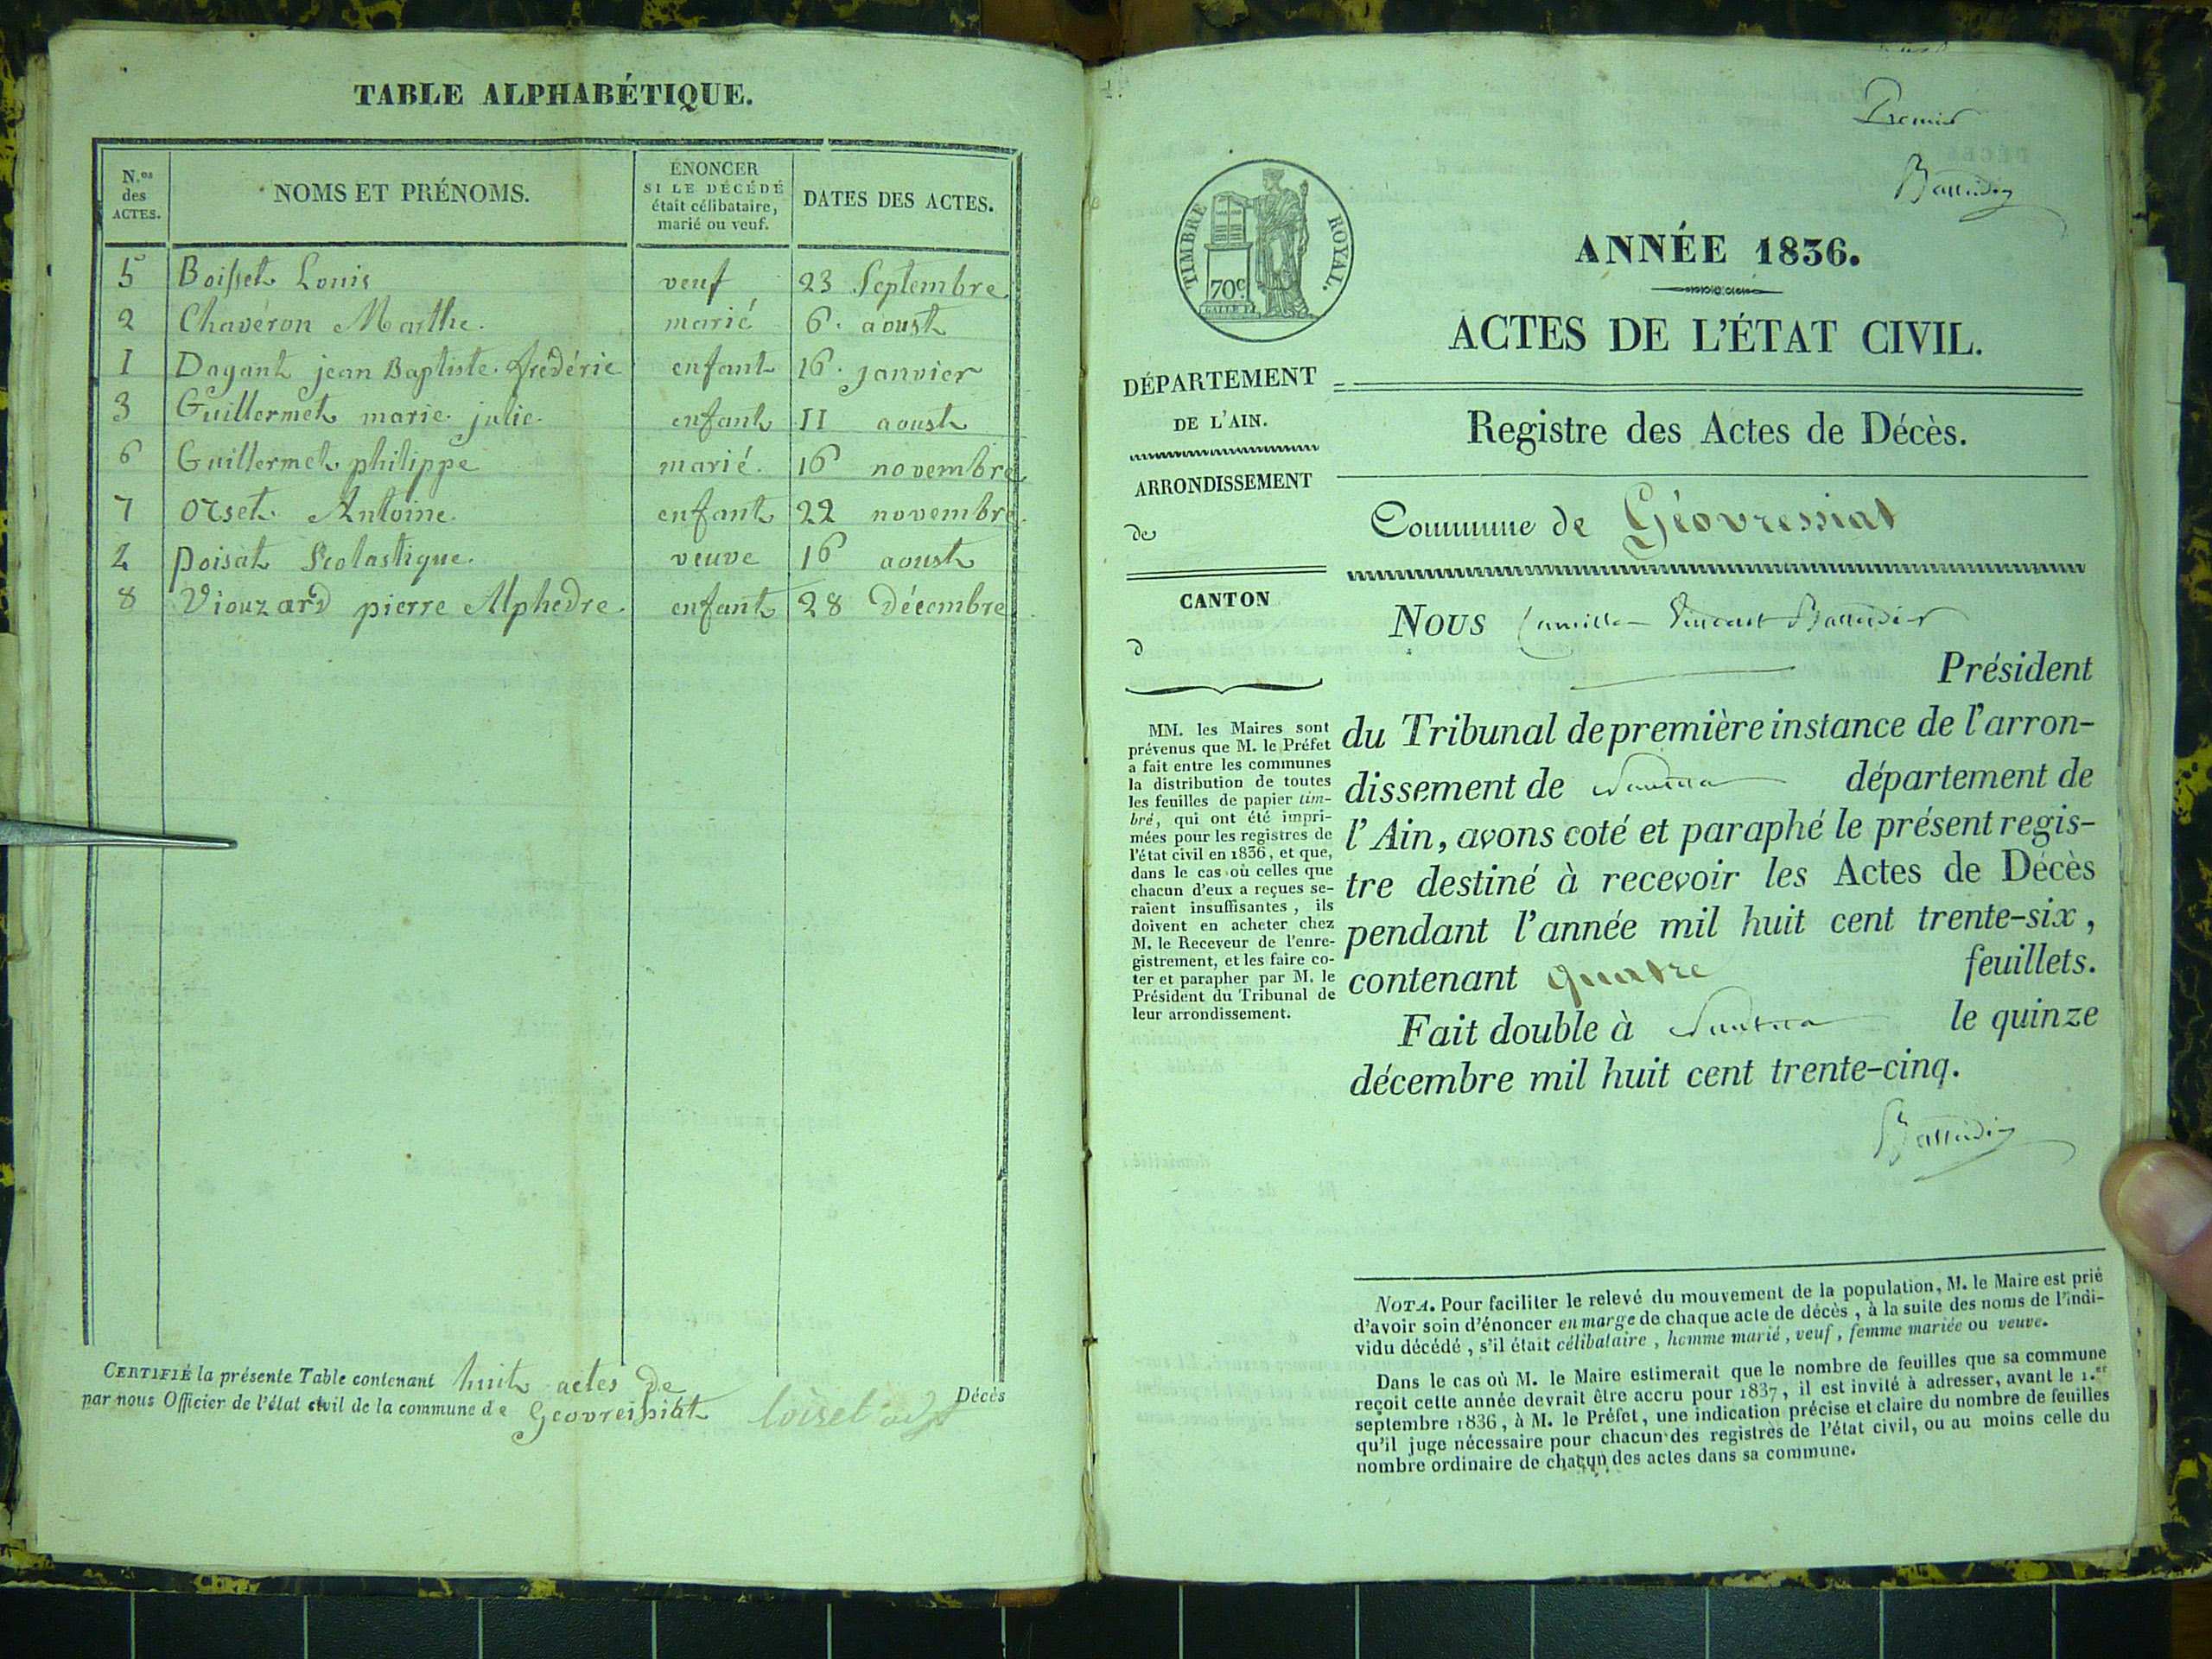 TABLE ALPHABÉTIQUE.
N.os des ACTES.
NOMS ET PRÉNOMS.
ÉNONCER SI LE DÉCÉDÉ était célibataire, marié ou veuf.
DATES DES ACTES.
5 Boisset Louis veuf 23 Septembre
2 Chaveron Marthe. marié 6. aoust
1 Dagant jean Baptiste. frédéric enfant 16. janvier
3 Guillermet marie. julie. enfant 11 aoust
6 Guillermet philippe marié. 16 novembre
7 Orset. Antoine. enfant 22 novembre
4 Poisat Scolastique. veuve 16 aoust
8 Viouzard pierre Alphedre. enfant 28 Décembre
CERTIFIÉ la présente Table contenant huit actes de Décès
par nous Officier de l'état civil de la commune de Geovreissiat loiset adjt
Premier
Ballidier
TIMBRE ROYAL.
70c.
ANNÉE 1836.
ACTES DE L'ÉTAT CIVIL.
DÉPARTEMENT
DE L'AIN.
ARRONDISSEMENT
de
CANTON
d
MM. les Maires sont
prévenus que M. le Préfet
a fait entre les communes
la distribution de toutes
les feuilles de papier tim-
bré, qui ont été impri-
mées pour les registres de
l'état civil en 1836, et que,
dans le cas où celles que
chacun d'eux a reçues se-
raient insuffisantes, ils
doivent en acheter chez
M. le Receveur de l'enre-
gistrement, et les faire co-
ter et parapher par M. le
Président du Tribunal de
leur arrondissement.
Registre des Actes de Décès.
Commune de Géovressiat
Nous Camille Vincent
Président
du Tribunal de première instance de l'arron-
dissement de Nantua département de
l'Ain, avons coté et paraphé le présent regis-
tre destiné à recevoir les Actes de Décès
pendant l'année mil huit cent trente-six,
contenant quatre feuillets.
Fait double à Nantua le quinze
décembre mil huit cent trente-cinq.
NOTA. Pour faciliter le relevé du mouvement de la population, M. le Maire est prié
d'avoir soin d'énoncer en marge de chaque acte de décès, à la suite des noms de l'indi-
vidu décédé, s'il était célibataire, homme marié, veuf, femme mariée ou veuve.
Dans le cas où M. le Maire estimerait que le nombre de feuilles que sa commune
reçoit cette année devrait être accru pour 1837, il est invité à adresser, avant le 1.er
septembre 1836, à M. le Préfet, une indication précise et claire du nombre de feuilles
qu'il juge nécessaire pour chacun des registres de l'état civil, ou au moins celle du
nombre ordinaire de chacun des actes dans sa commune.